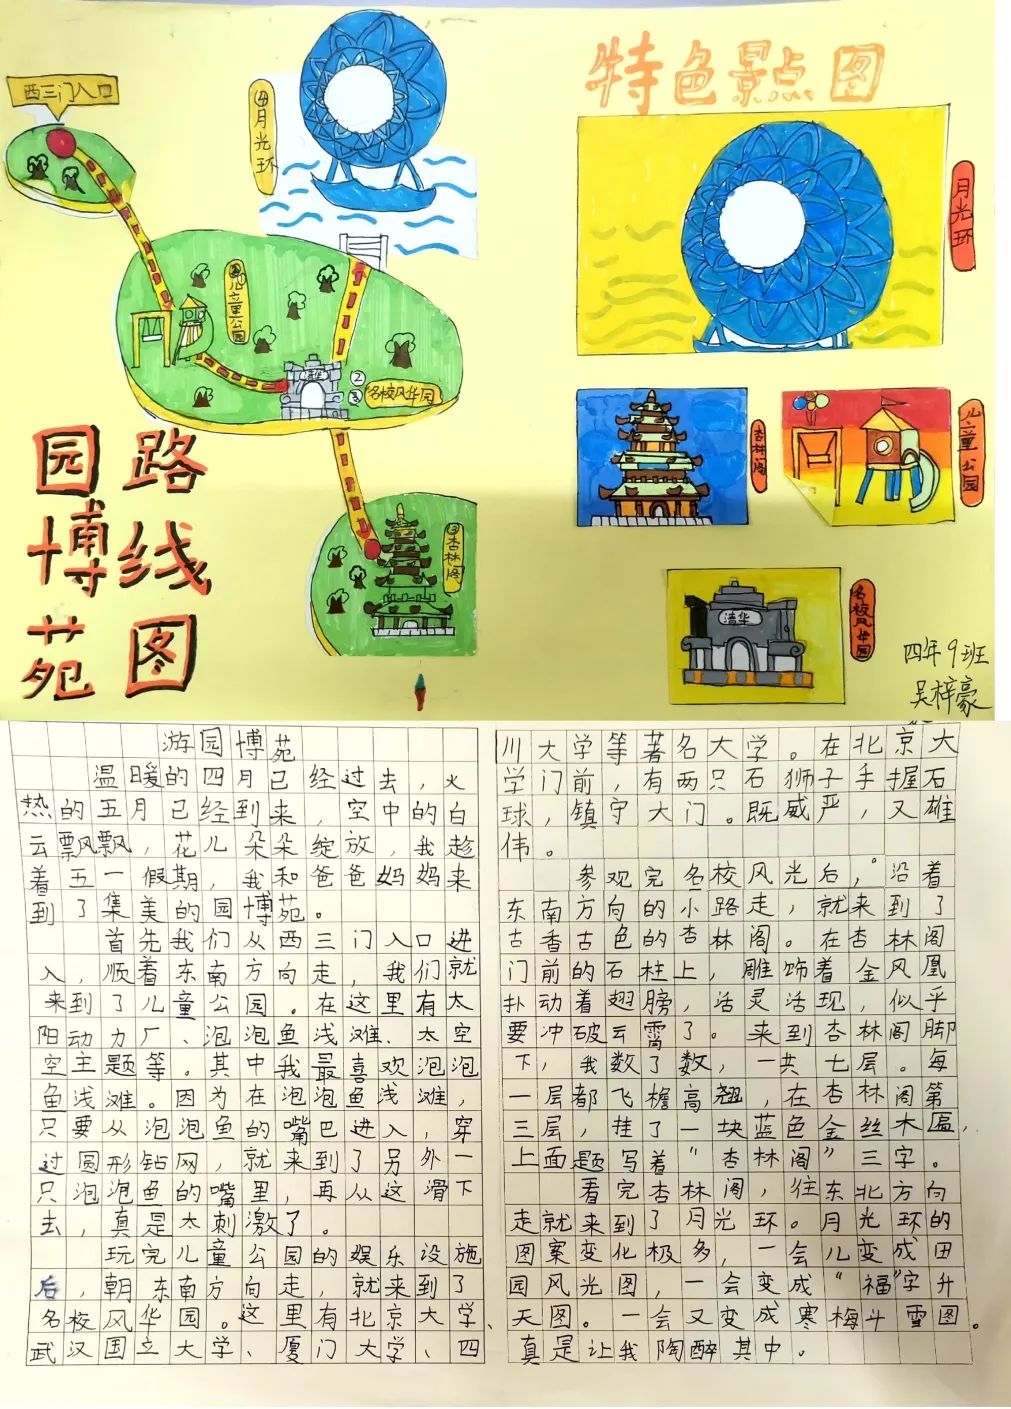 西三门入口
④月光环
①儿童公园
清华
②
③
名校风华园
③杏林阁
园博苑
路线图
特色景点图
月光环
杏林阁
儿童公园
清华
名校风华园
四年9班
吴梓豪
游园博苑
温暖的四月已经过去，火
热的五月已经到来，空中的白
云飘飘，花儿朵朵绽放，我趁
着五一假期，我和爸爸妈妈来
到了集美的园博苑。
首先我们从西三门入口进
入，顺着东南方向走，我们就
来到了儿童公园。在这里有太
阳动力厂、泡泡鱼浅滩、太空
空主题等。其中我最喜欢泡泡
鱼浅滩。因为在泡泡鱼浅滩，
只要从泡泡鱼的嘴巴进入，穿
过圆形钻网，就来到了另外一
只泡泡鱼的嘴里，再从这滑下
去，真是太刺激了。
玩完儿童公园的娱乐设施
后，朝东南方向走，就来到了
名校风华园。这里有北京大学、
武汉国立大学、厦门大学、四
川大学等著名大学。在北京大
学门前，有两只石狮子手握石
球，镇守大门。既威严，又雄
伟。
参观完名校风光后，沿着
东南方向的小路走，就来到了
古香古色的杏林阁。在杏林阁
门前的石柱上，雕饰着金凤凰
扑动着翅膀，活灵活现，似乎
要冲破云霄了。来到杏林阁脚
下，我数了数，一共七层。每
一层都飞檐高翘，在杏林阁第
三层，挂了一块蓝色金丝木匾，
上面题写着“杏林阁”三字。
看完杏林阁，往东北方向
走就来到了月光环。月光环的
图案变化极多，一会儿变成田
园风光图，一会变成“福”字升
天图。一会又变成寒梅斗雪图。
真是让我陶醉其中。